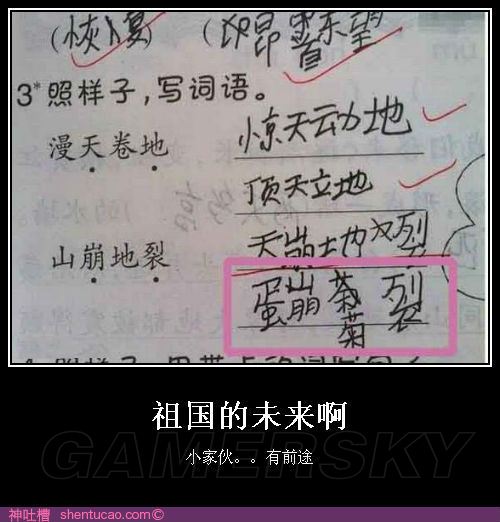 (恢复) (昂首东望)
3*照样子,写词语。
漫天卷地 惊天动地
顶天立地
山崩地裂 天崩地裂
蛋崩菊裂
祖国的未来啊
GAMERSKY
小家伙。。有前途
神吐槽 shentucao.com